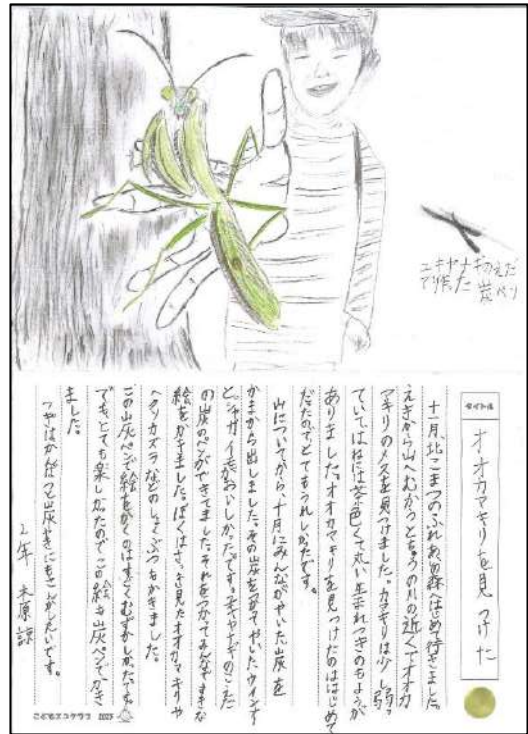 ユキヤナギのえだ
で作った炭ペン
タイトル
オオカマキリを見つけた
十一月、北こまつのふれあいの森へはじめて行きました。
えきから山へむかうとちゅうの川の近くでオオカ
マキリのメスを見つけました。カマキリは少し弱っ
ていてはねには茶色くて丸い生まれつきのもようが
ありました。オオカマキリを見つけたのははじめて
だったのでとてもうれしかったです。
山についてから、十月にみんながやいた炭を
かまから出しました。その炭をつかってやいたウインナー
とジャガイモがおいしかったです。ユキヤナギのえだ
の炭のペンができてました。それをつかってみんなすきな
絵をかきました。ぼくはさっき見たオオカマキリや
ヘクソカズラなどのしょくぶつもかきました。
この山炭ペンで絵をかくのはすごくむずかしかったです。
でも、とても楽しかったのでこの絵も炭ペンでかき
ました。
つぎはかだって炭やきにもさんかしたいです。
2年 木原 諒
こどもエコクラブ 2023